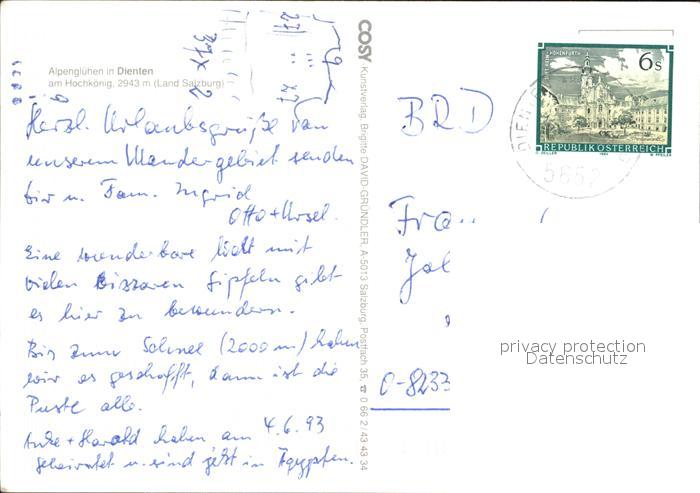 Alpenglühen in Dienten
am Hochkönig, 2943 m (Land Salzburg)
Herzl. Urlaubsgrüße von
unserem Wandergebiet senden
wir u. Fam. Ingrid
Otto + Ursel.
Eine wunderbare Welt mit
vielen bizzaren Gipfeln gibt
es hier zu bewundern.
Bis zum Schnee (2000 m) haben
wir es geschafft, dann ist die
Puste alle.
Anke + Harald haben am 4.6.93
geheiratet u. sind jetzt in Ägypten.
COSY Kunstverlag, Brigitte DAVID-GRÜNDLER, A-5013 Salzburg, Postfach 35, ☎ 0 66 2 / 43 43 34
6 s
REPUBLIK ÖSTERREICH
DIENT
5652
BRD
Fra
O-8233
privacy protection
Datenschutz